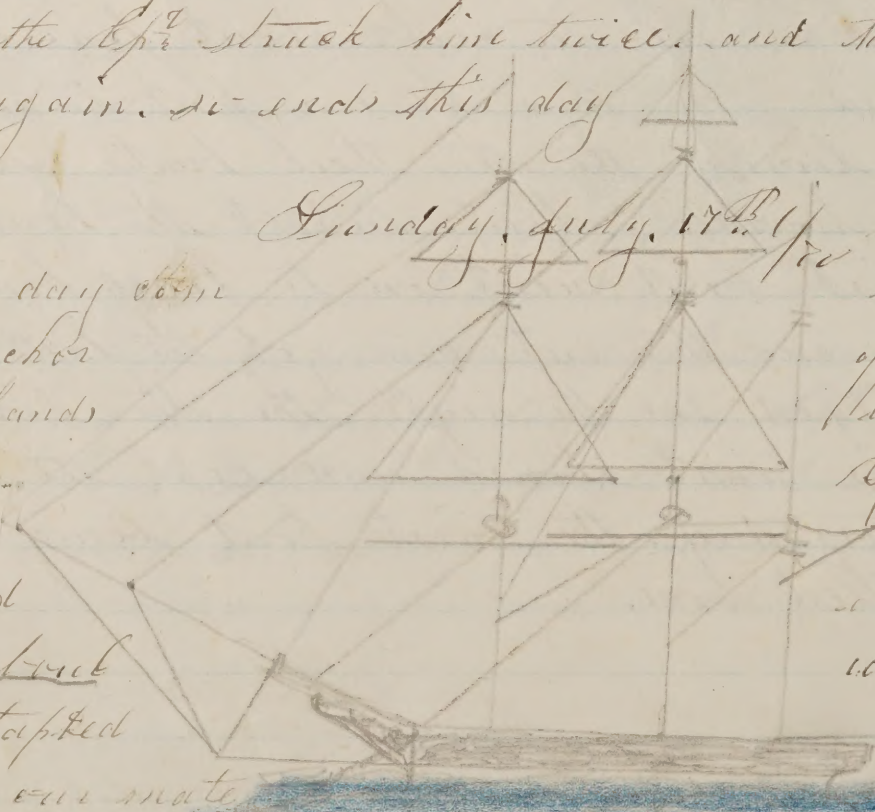 the Cpt struck him twice. and th
gain. so ends this day
Sunday. July. 17th 1/70
day com
chor
lands
d
bout
tapked
our mate